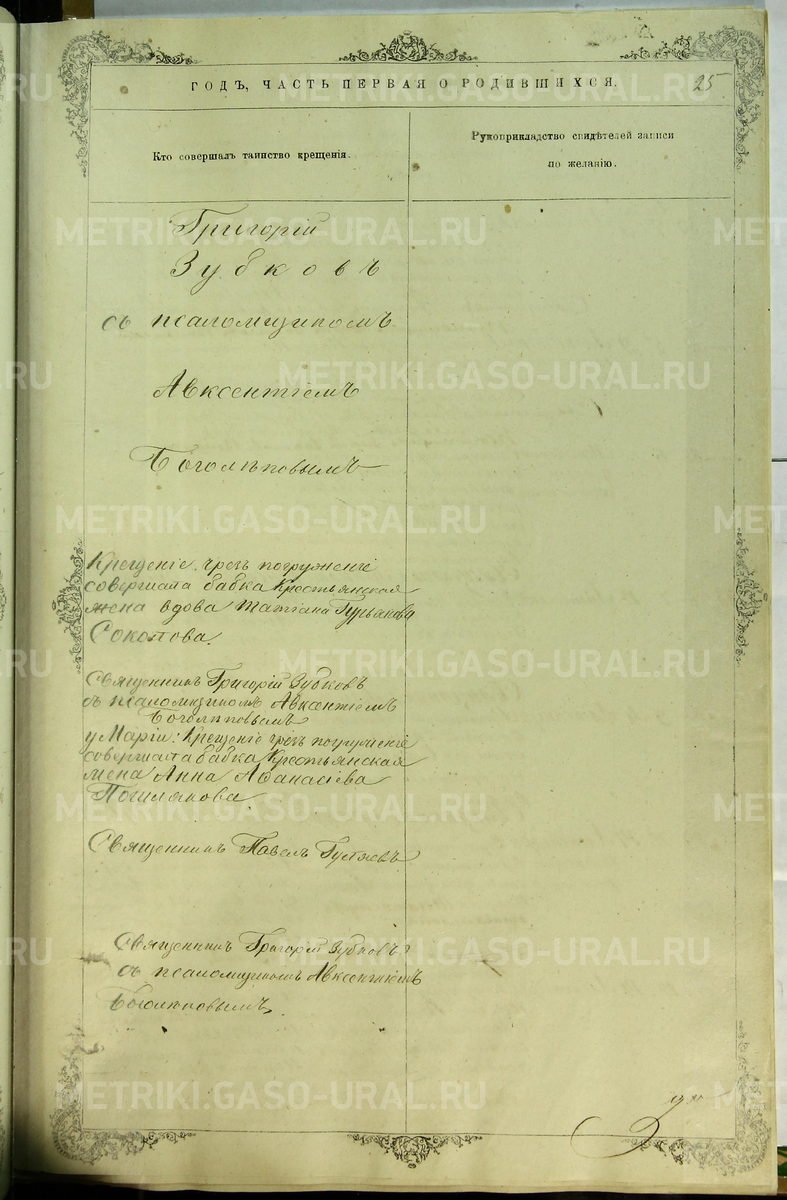 ГОДЪ, ЧАСТЬ ПЕРВАЯ О РОДИВШИХСЯ.
25
Кто совершалъ таинство крещенія.
Рукоприкладство свидѣтелей записи
по желанію.
Григорій
Зубковъ
съ псаломщикомъ
Авксентіемъ
Боголѣповымъ
Крещеніе чрезъ погруженіе
совершала бабка Крестьянская
жена вдова Татіана Гурьянова
Соколова.
Священникъ Григорій Зубковъ
съ псаломщикомъ Авксентіемъ
Боголѣповымъ
у Маріи: Крещеніе чрезъ погруженіе
совершала бабка Крестьянская
жена Анна Афанасіева
Пошлякова.
Священникъ Павелъ Гуляевъ
Священникъ Григорій Зубковъ
съ псаломщикомъ Авксентіемъ
Боголѣповымъ.
METRIKI.GASO-URAL.RU